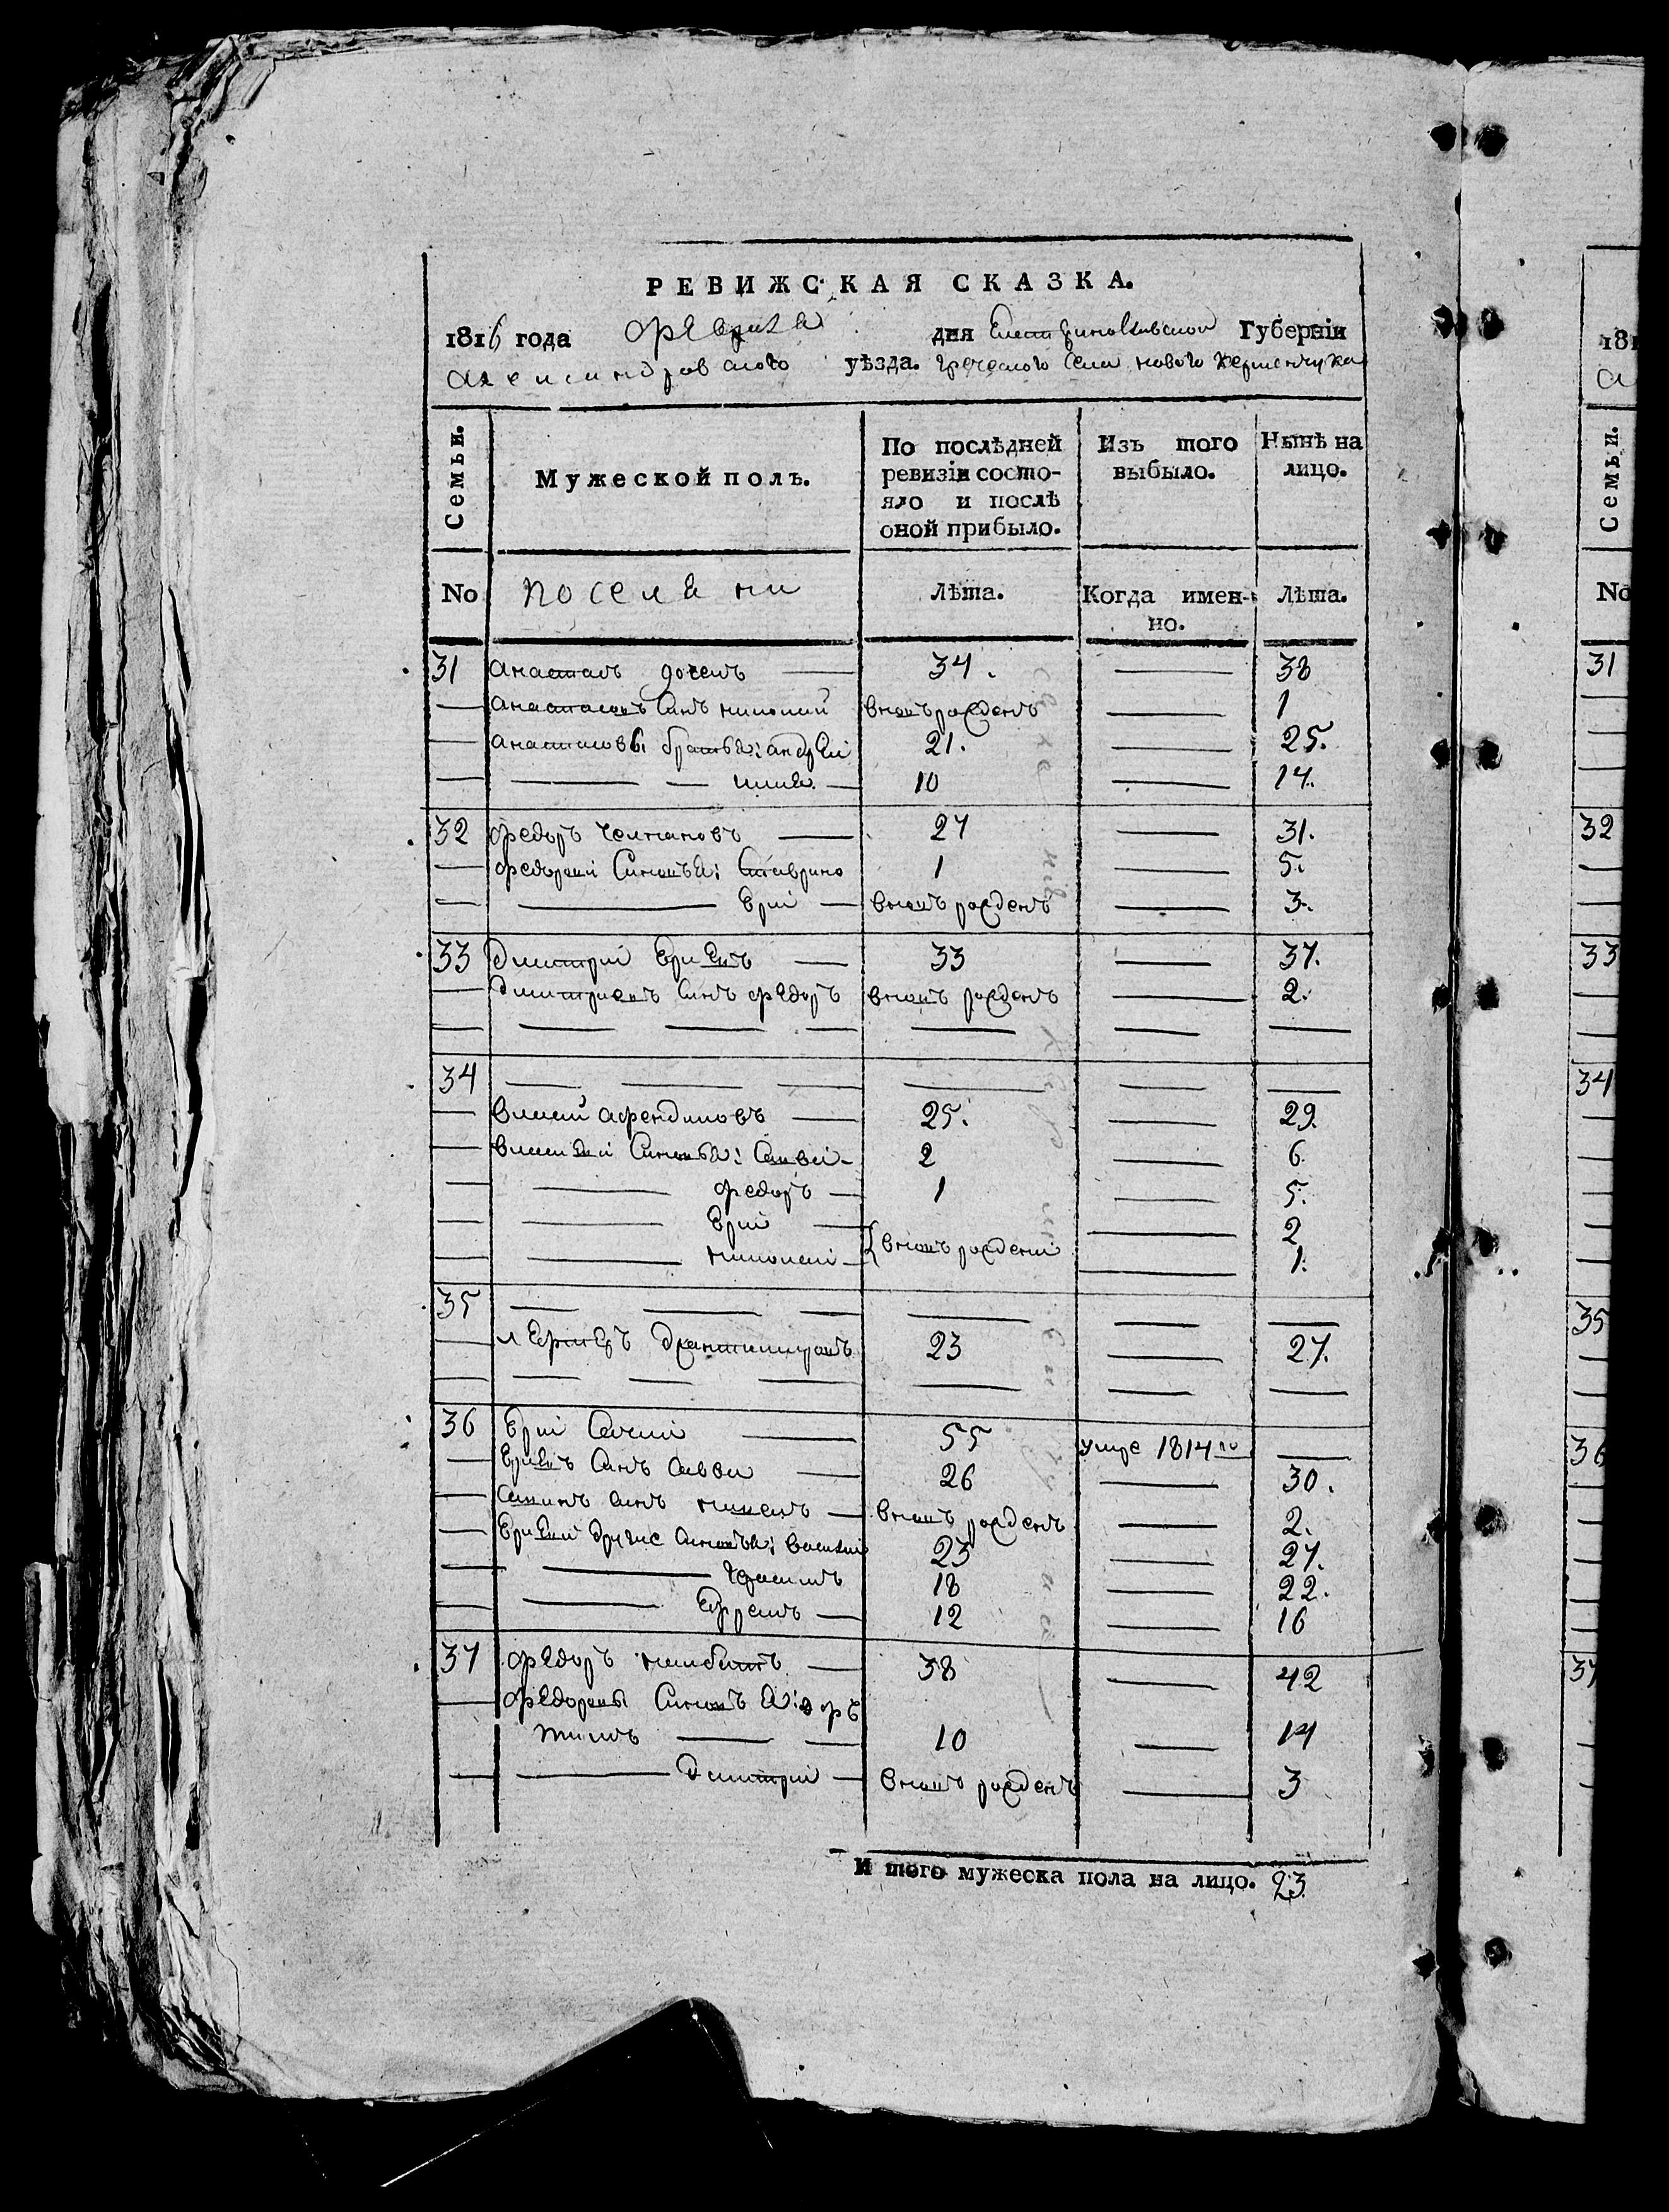 РЕВИЖСКАЯ СКАЗКА.
1816 года февраля дня Екатеринославской Губернiи
Александровского уѣзда. греческого села нового керменчука
Семьи.
Мужеской полъ.
По послѣдней ревизiи состояло и послѣ оной прибыло.
Изъ того выбыло.
Нынѣ на лицо.
No поселяни Лѣта. Когда именно. Лѣта.
31 анастасъ 34. — 38
анастасовъ синъ николай вновъ рожденъ — 1
анастасовы братья: андрей 21. — 25.
илия — 10 — 14.
32 федоръ челпановъ — 27 — 31.
федорови Синовъя: Ставрино 1 — 5.
Ері — вновъ рожденъ — 3.
33 Дмитрий Ериевъ — 33 — 37.
дмитриевъ синъ федоръ вновъ рожденъ — 2.
34
василий афендиковъ — 25. — 29.
василиеви Синовъя: Савви — 2 — 6
федоръ — 1 — 5.
Ерий — 2
николай — { вновъ рождени — 1.
35
23 — 27.
36 Ерий — 55 умре 1814го —
Ериевъ Синъ савви — 26 — 30.
савинъ синъ — вновъ рожденъ — 2.
Ериеви другие синовъя: василий 23 — 27.
герасимъ 18 — 22.
Ефремъ — 12 — 16
37 федоръ — 38 — 42
федоровы Синовъя: ар
тимъ — 10 — 14
Дмитрий — вновъ рожденъ — 3
И того мужеска пола на лицо. 23
181
Семьи.
No
31
32
33
34
35
36
37